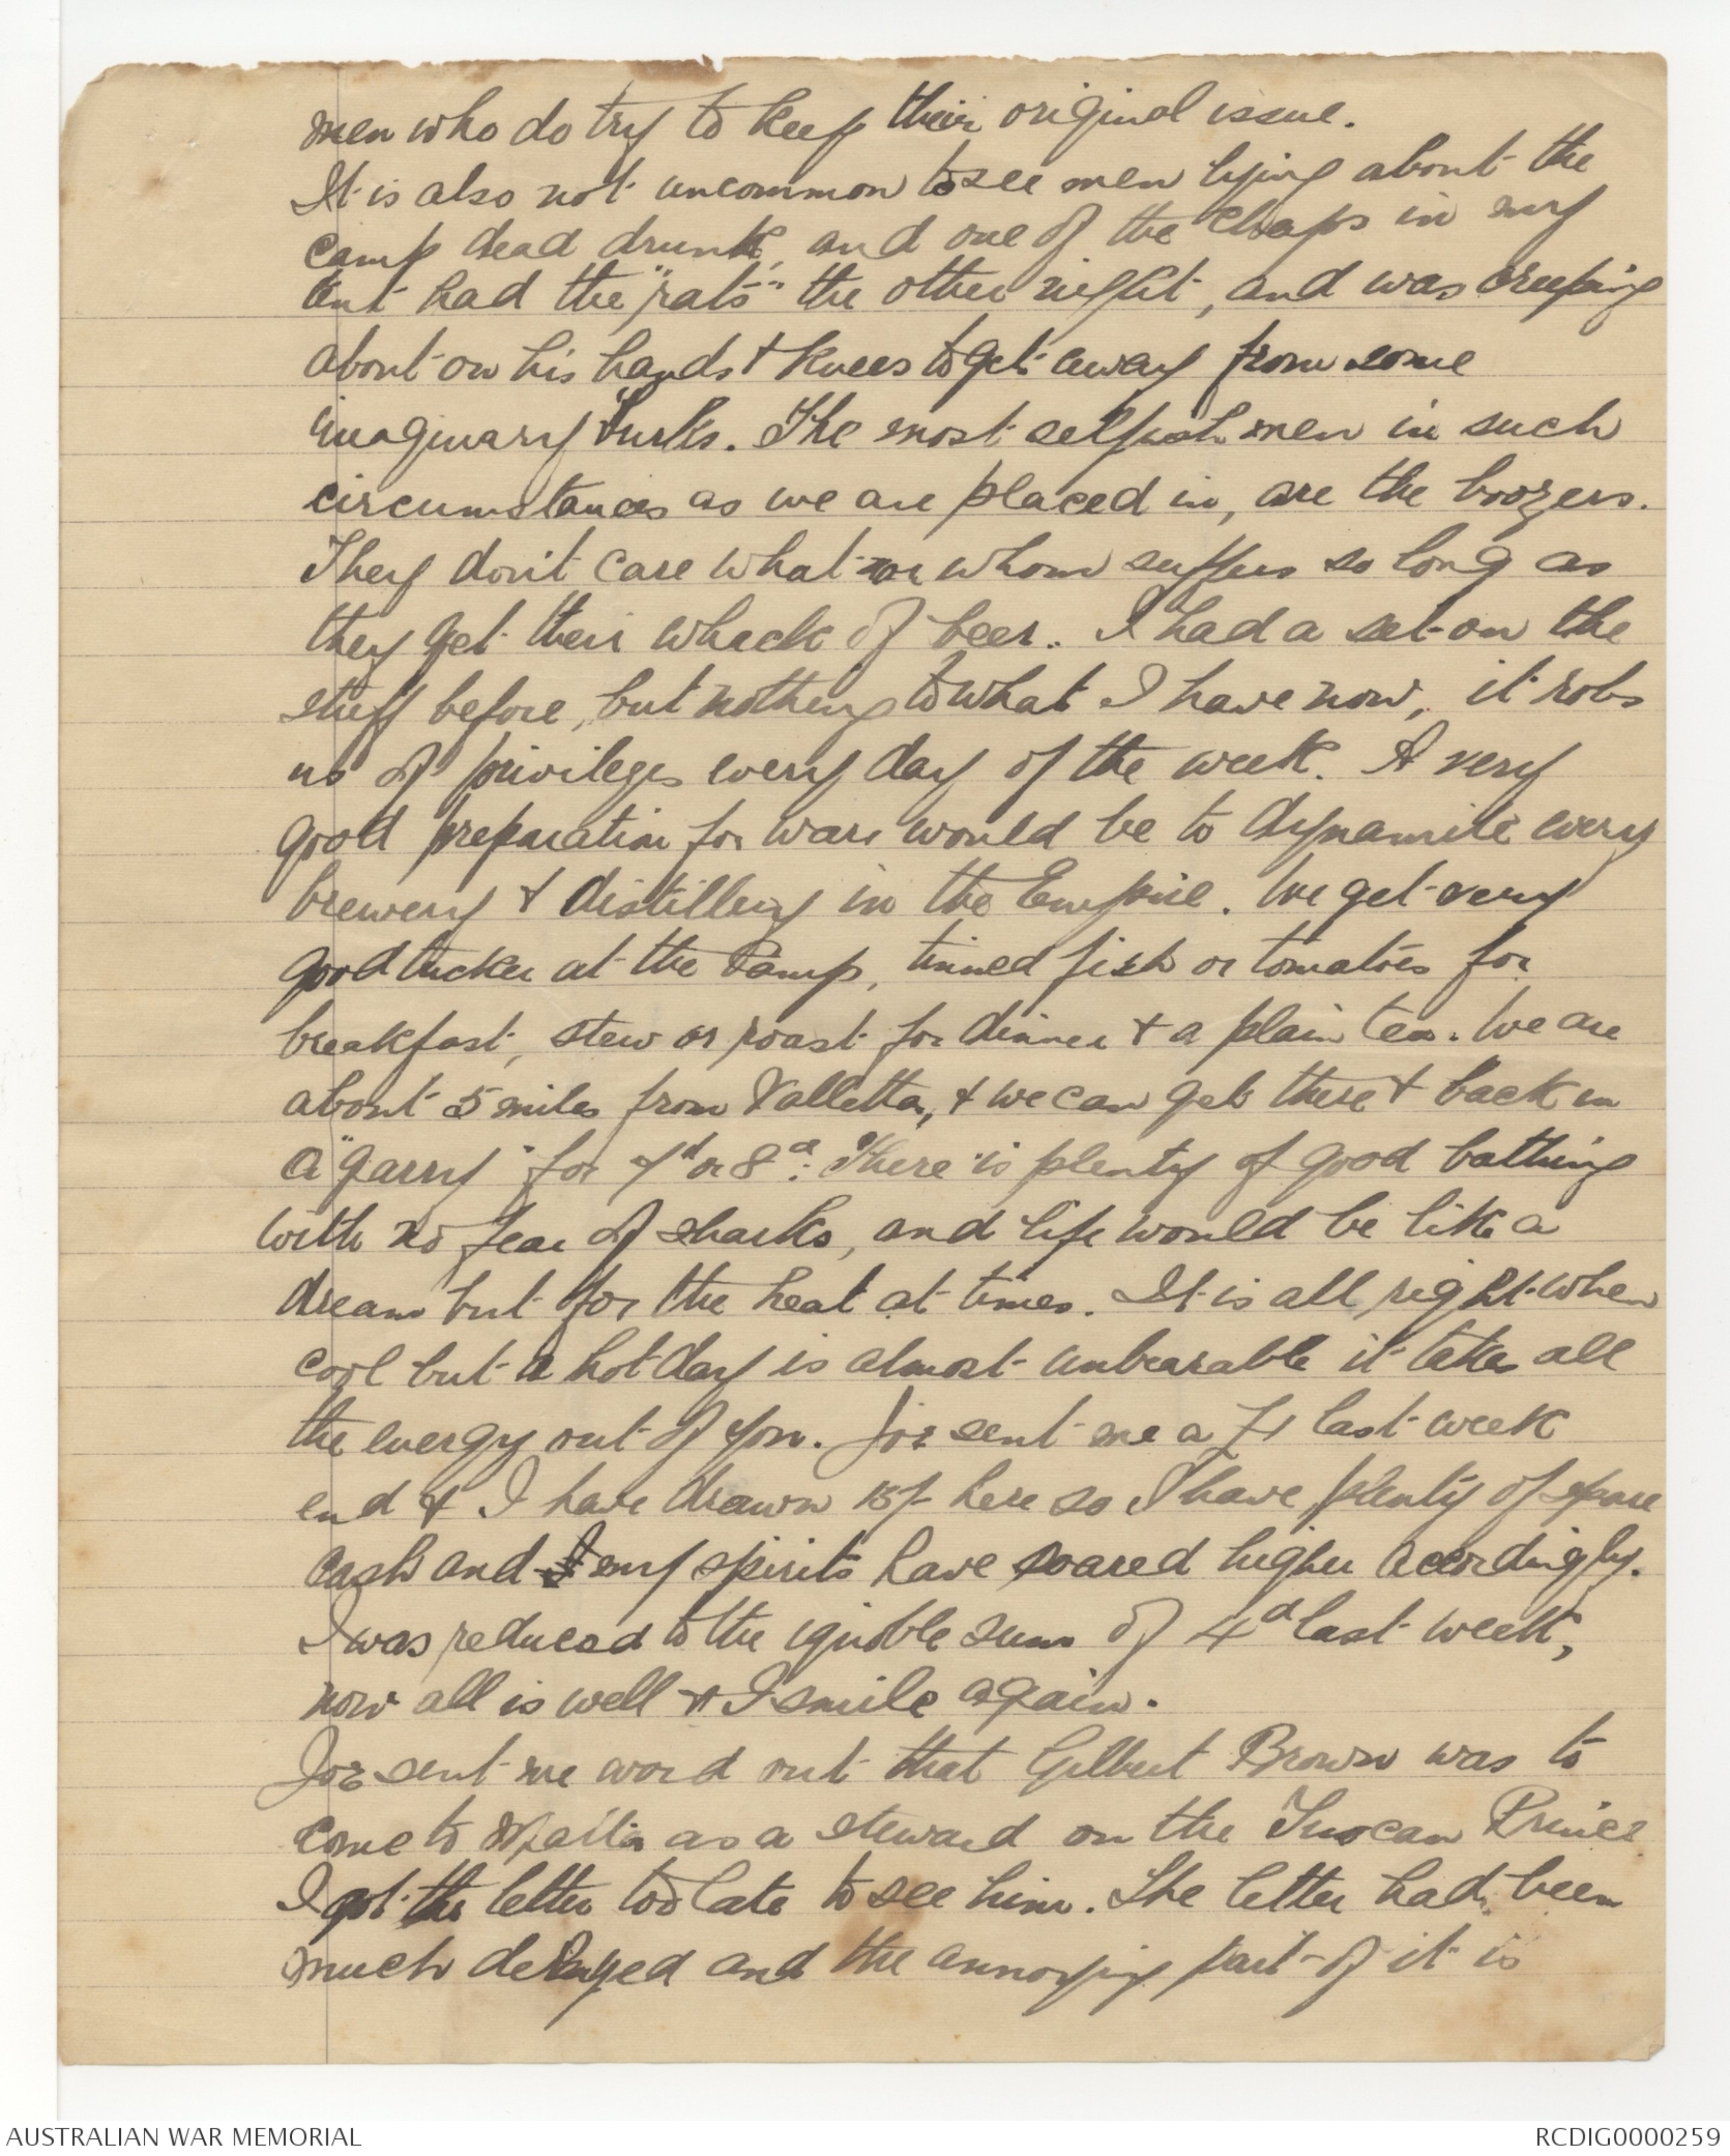 men who do try to keep their original issue.
It is also not uncommon to see men lying about the
camp dead drunk, and one of the chaps in my
tent had the "rats" the other night, and was creeping
about on his hands & knees to get away from some
imaginary Turks. The most selfish men in such
circumstances as we are placed in, are the boozers.
They don't care what or whom suffers so long as
they get their whack of beer. I had a set on the
stuff before, but nothing to what I have now, it robs
us of privileges every day of the week. A very
good preparation for war would be to dynamite every
brewery & distillery in the Empire. We get very
good tucker at the Camp, tinned fish or tomatoes for
breakfast, stew or roast for dinner & a plain tea. We are
about 5 miles from Valletta, & we can get there & back in
a "garry" for 7d or 8d. There is plenty of good bathing
with no fear of sharks, and life would be like a
dream but for the heat at times. It is all right when
cool but a hot day is almost unbearable it takes all
the energy out of you. Joe sent me a £1 last week
end & I have drawn 15/- here so I have plenty of spare
cash and my spirits have soared higher accordingly.
I was reduced to the ignoble sum of 4d last week,
now all is well & I smile again.
Joe sent me word out that Gilbert Brown was to
come to Malta as a steward on the Tuscan Prince
I got the letter too late to see him. The letter had been
much delayed and the annoying part of it is
AUSTRALIAN WAR MEMORIAL
RCDIG0000259